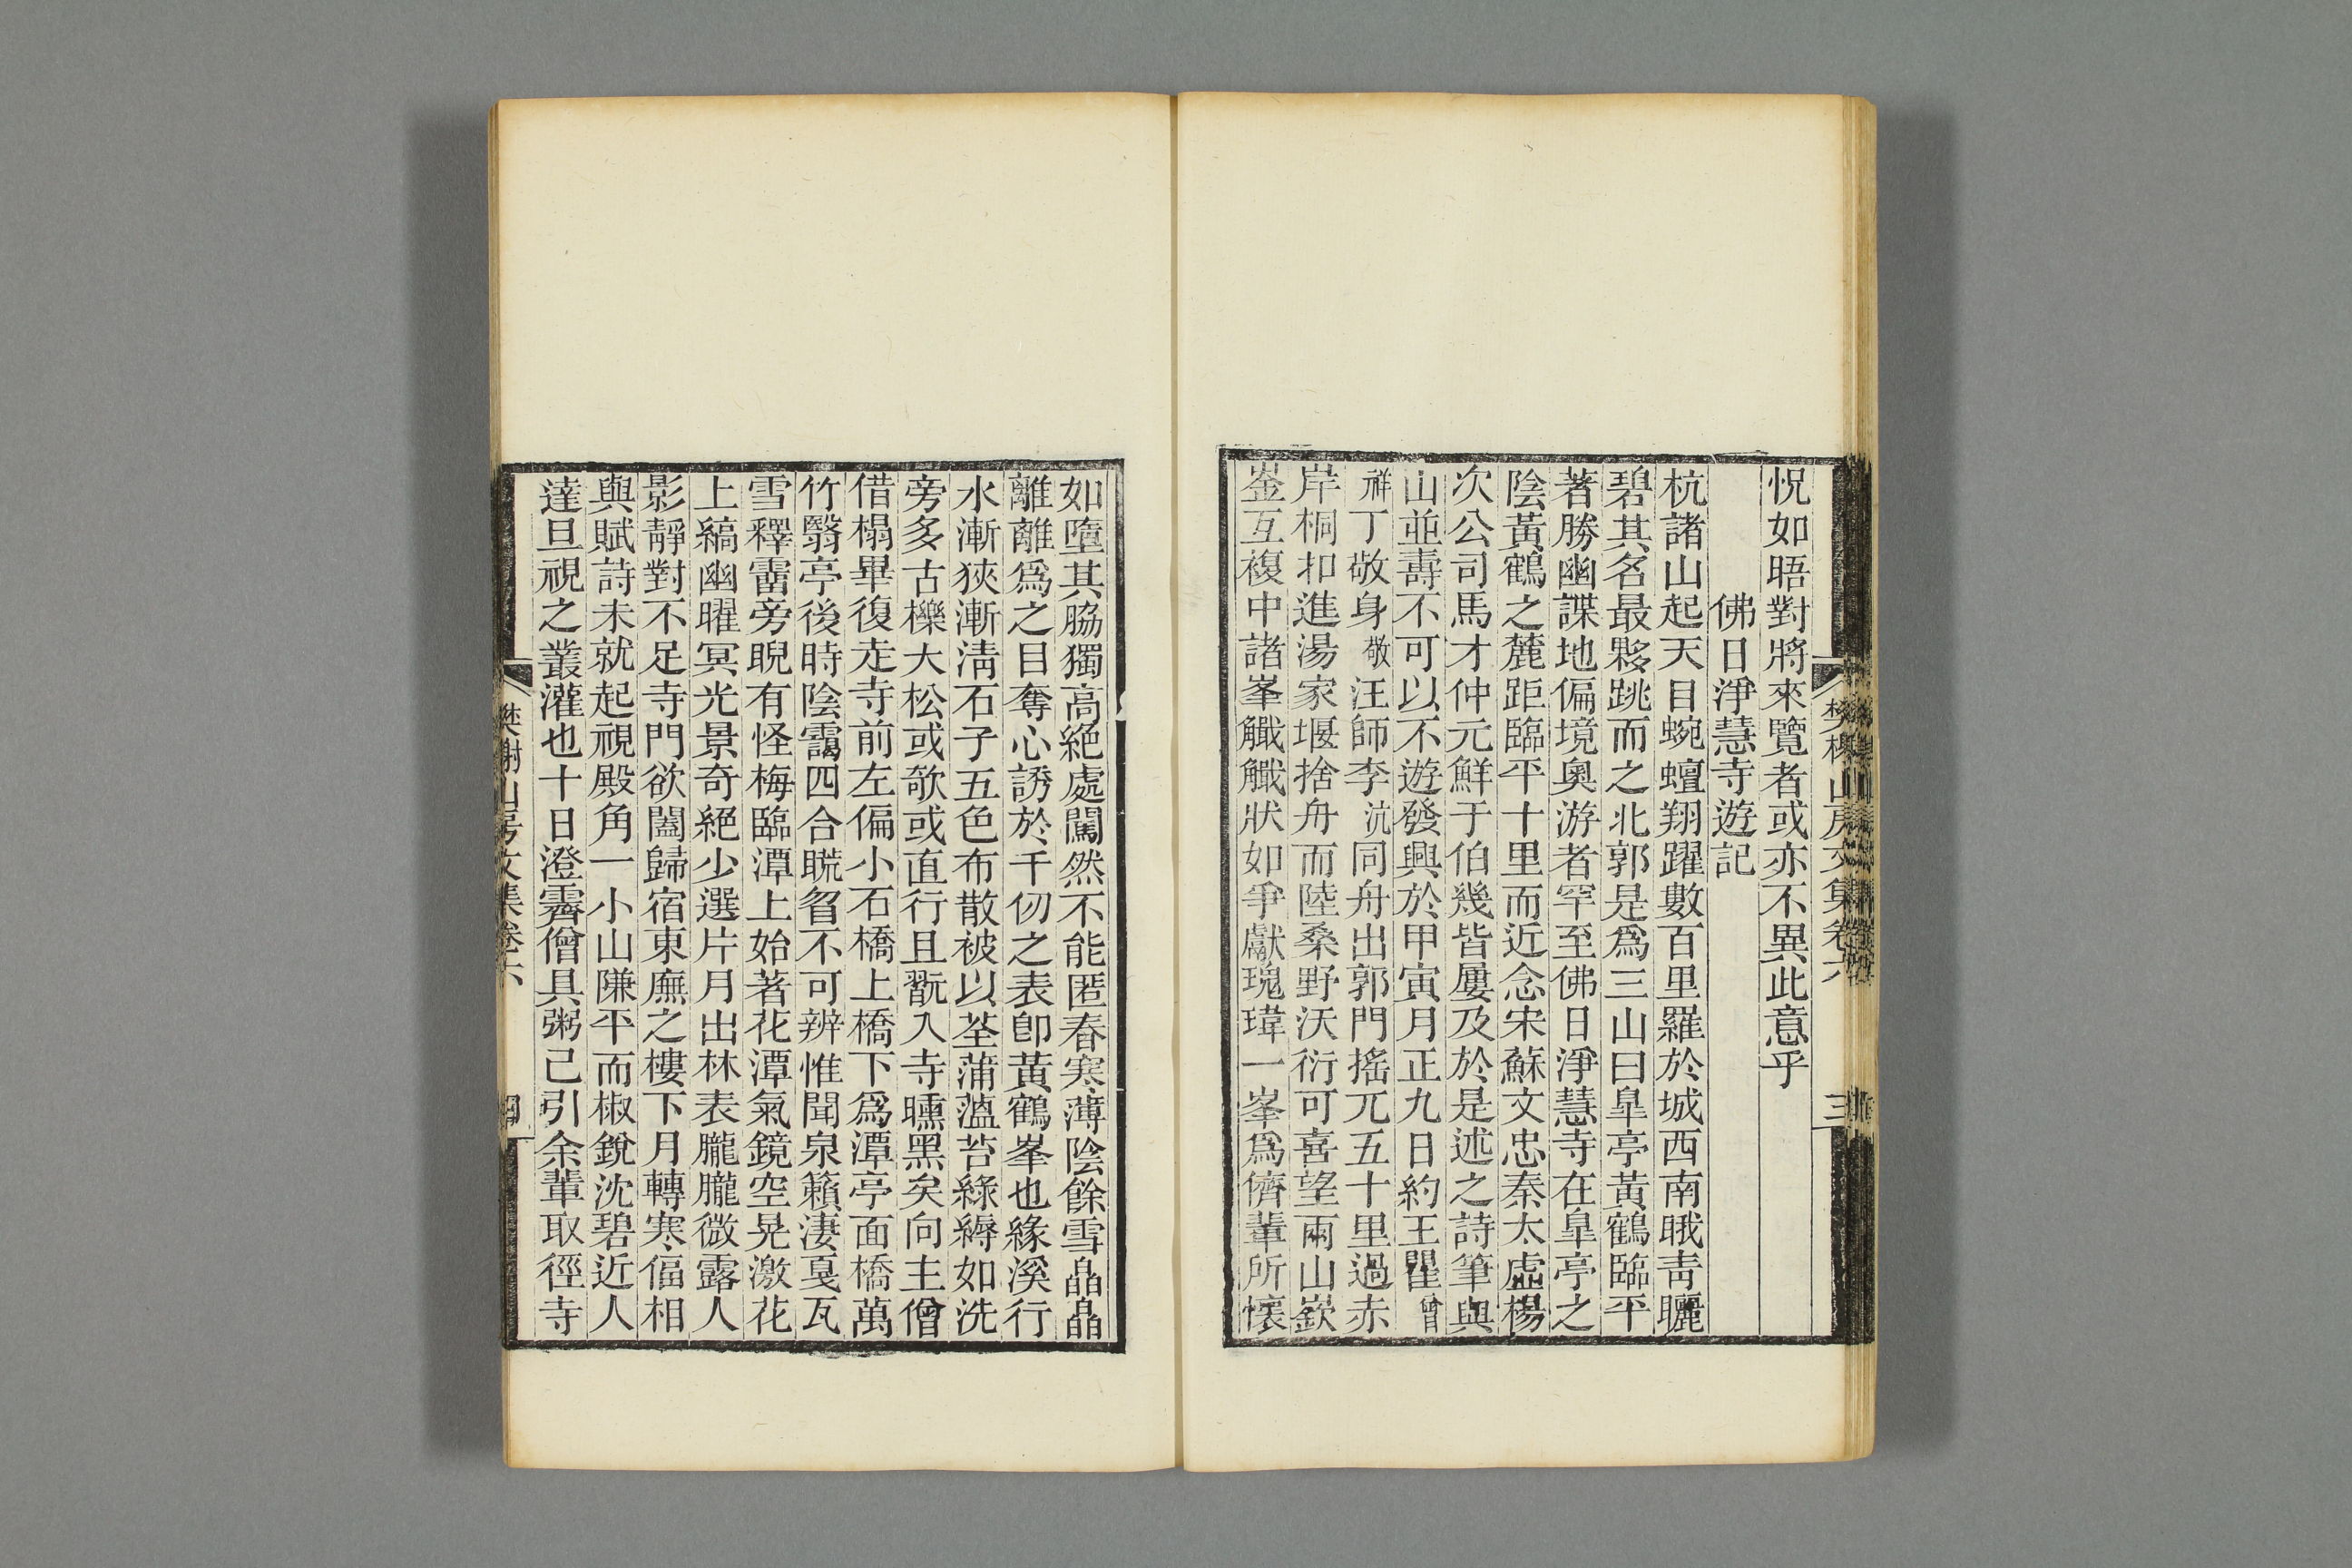 樊榭山房文集卷六
三
怳如晤對將來覽者或亦不異此意乎
佛日淨慧寺遊記
杭諸山起天目蜿蟺翔躍數百里羅於城西南睋靑矖
碧其名最夥跳而之北郭是爲三山曰臯亭黃鶴臨平
著勝幽諜地偏境奧游者罕至佛日淨慧寺在臯亭之
陰黃鶴之麓距臨平十里而近念宋蘇文忠秦太虛楊
次公司馬才仲元鮮于伯幾皆屢及於是述之詩筆與
山並壽不可以不遊發興於甲寅月正九日約王瞿曾
祥丁敬身敬汪師李沆同舟出郭門搖兀五十里過赤
岸桐扣進湯家堰捨舟而陸桑野沃衍可喜望兩山嶔
崟互複中諸峯觿觿狀如爭獻瑰瑋一峯爲儕輩所懷
如墮其脇獨高絕處闖然不能匿春寒薄陰餘雪皛皛
離離爲之目奪心誘於千仞之表卽黃鶴峯也緣溪行
水漸狹漸淸石子五色布散被以荃蒲薀苔綠縟如洗
旁多古櫟大松或欹或直行且翫入寺曛黑矣向主僧
借榻畢復走寺前左偏小石橋上橋下爲潭亭面橋萬
竹翳亭後時陰靄四合䀮眢不可辨惟聞泉籟淒戛瓦
雪釋霤旁睨有怪梅臨潭上始著花潭氣鏡空晃激花
上縞幽曜冥光景奇絕少選片月出林表朧朧微露人
影靜對不足寺門欲闔歸宿東廡之樓下月轉寒偪相
與賦詩未就起視殿角一小山隒平而椒銳沈碧近人
達旦視之叢灌也十日澄霽僧具粥己引余輩取徑寺
樊榭山房文集卷六
四